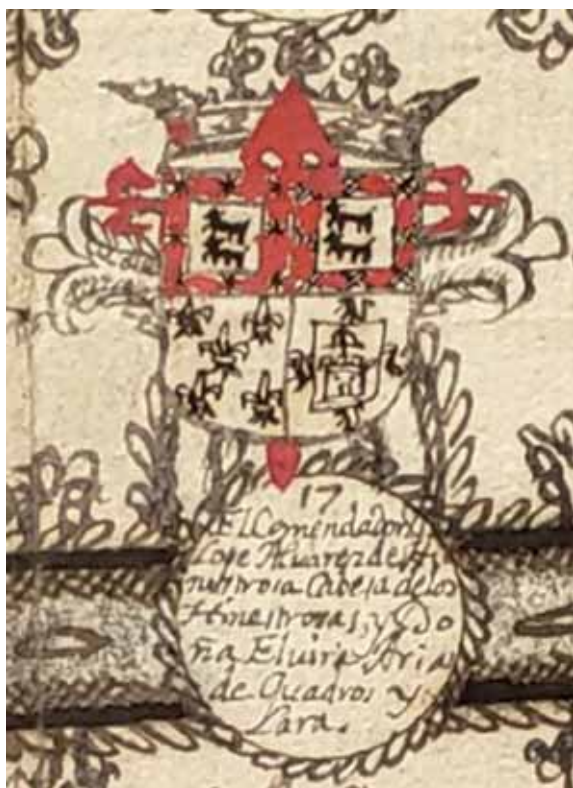 17
El Comendador
Lope Alvarez de Hi
nestrosa Cabesa de los
Hinestrosas, y Do
ña Elvira Aria
de Quadros y
Lara.